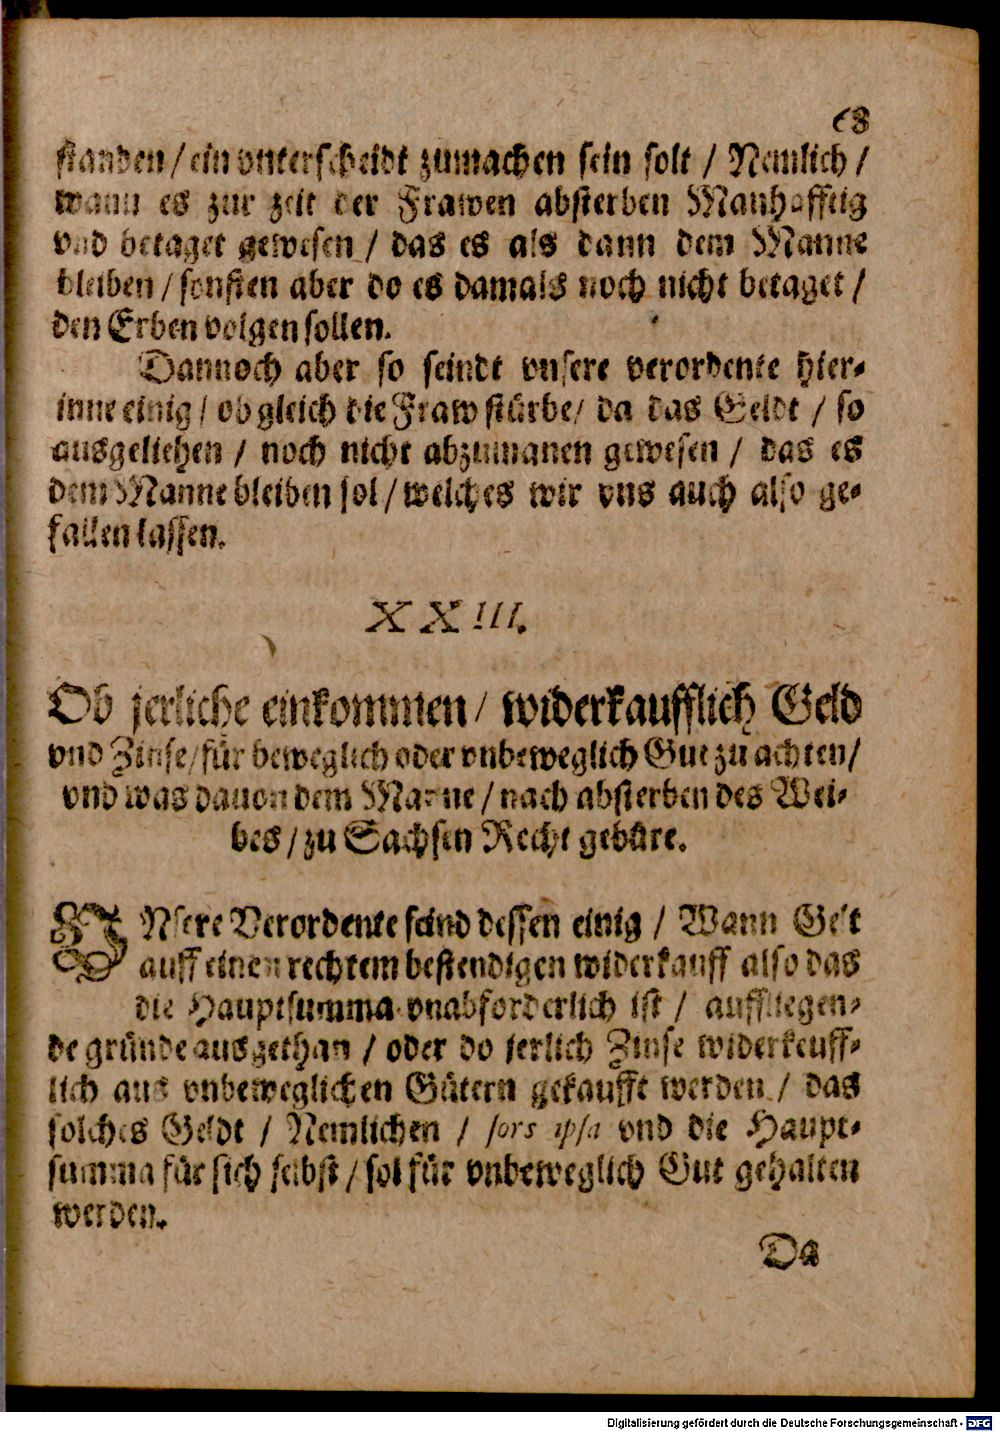 68
standen / ein vnterscheidt zumachen sein solt / Nemlich /
wann es zur zeit der Frawen absterben Manhafftig
vnd betaget gewesen / das es als dann dem Manne
bleiben / sonsten aber do es damals noch nicht betaget /
den Erben volgen sollen.
Dannoch aber so seindt vnsere verordente hier-
inne einig / ob gleich die Fraw stürbe / da das Geldt / so
ausgeliehen / noch nicht abzumanen gewesen / das es
dem Manne bleiben sol / welches wir vns auch also ge-
fallen lassen.
XXIII.
Ob jerliche einkommen / widerkaufflich Geld
vnd Zinse / für beweglich oder vnbeweglich Gut zu achten /
vnd was dauon dem Manne / nach absterben des Wei-
bes / zu Sachsen Recht gebüre.
VNsere Verordente seind dessen einig / Wann Gelt
auff einen rechtem bestendigen widerkauff also das
die Hauptsumma vnabforderlich ist / auff liegen-
de gründe ausgethan / oder do jerlich Zinse widerkeuff-
lich aus vnbeweglichen Gütern gekaufft werden / das
solches Geldt / Nemlichen / sors ipsa vnd die Haupt-
summa für sich selbst / sol für vnbeweglich Gut gehalten
werden.
Da
Digitalisierung gefördert durch die Deutsche Forschungsgemeinschaft - DFG